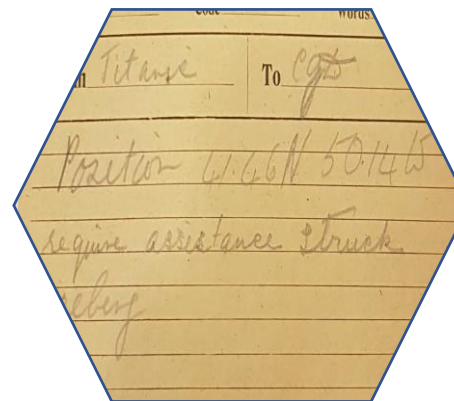 Code Words.
m Titanic To CQD
Position 41.46N 50.14W
require assistance struck
ceberg